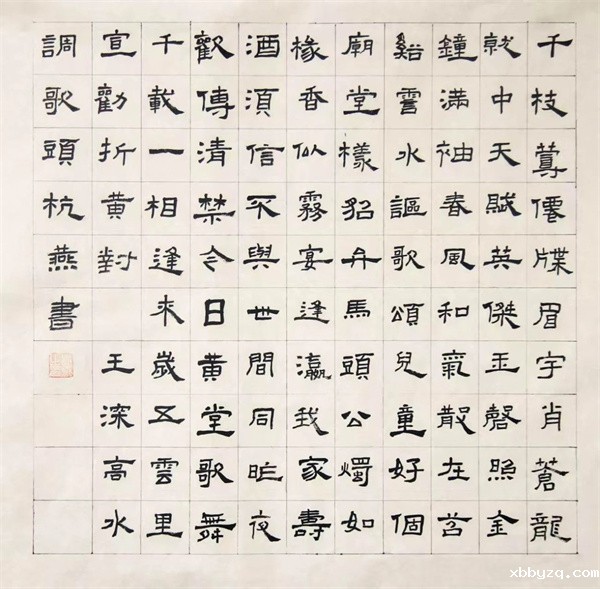 千枝蕚僊牒眉宇肖蒼龍
就中天賦英傑玉磬照金
鐘滿袖春風和氣散在苕
谿雲水謳歌頌兒童好個
廟堂樣貂弁馬頭公燭如
椽香似霧宴逢瀛我家壽
酒須信不與世間同昨夜
歡傳清禁今日黃堂歌舞
千載一相逢來歲五雲里
宣勸折黃封 王深高水
調歌頭杭燕書
xbbyzq.com